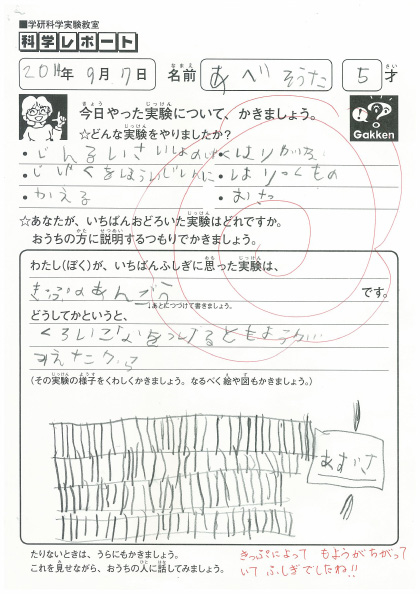 ■学研科学実験教室
科学レポート
2011年 9月 17日 名前 あべ そうた 5才
今日やった実験について、かきましょう。
☆どんな実験をやりましたか?
Gakken
・じんるいさいしょの
・じしゃく
・かえる
☆あなたが、いちばんおどろいた実験はどれですか。
おうちの方に説明するつもりでかきましょう。
わたし(ぼく)が、いちばんふしぎに思った実験は、
きっぷのあんごう です。
↓あとにつづけて書きましょう。
どうしてかというと、
くろいこなをつけるともようが
みえたから
(その実験の様子をくわしくかきましょう。なるべく絵や図もかきましょう。)
あずさ
たりないときは、うらにもかきましょう。
これを見せながら、おうちの人に話してみましょう。
きっぷによって もようがちがって
いて ふしぎでしたね!!